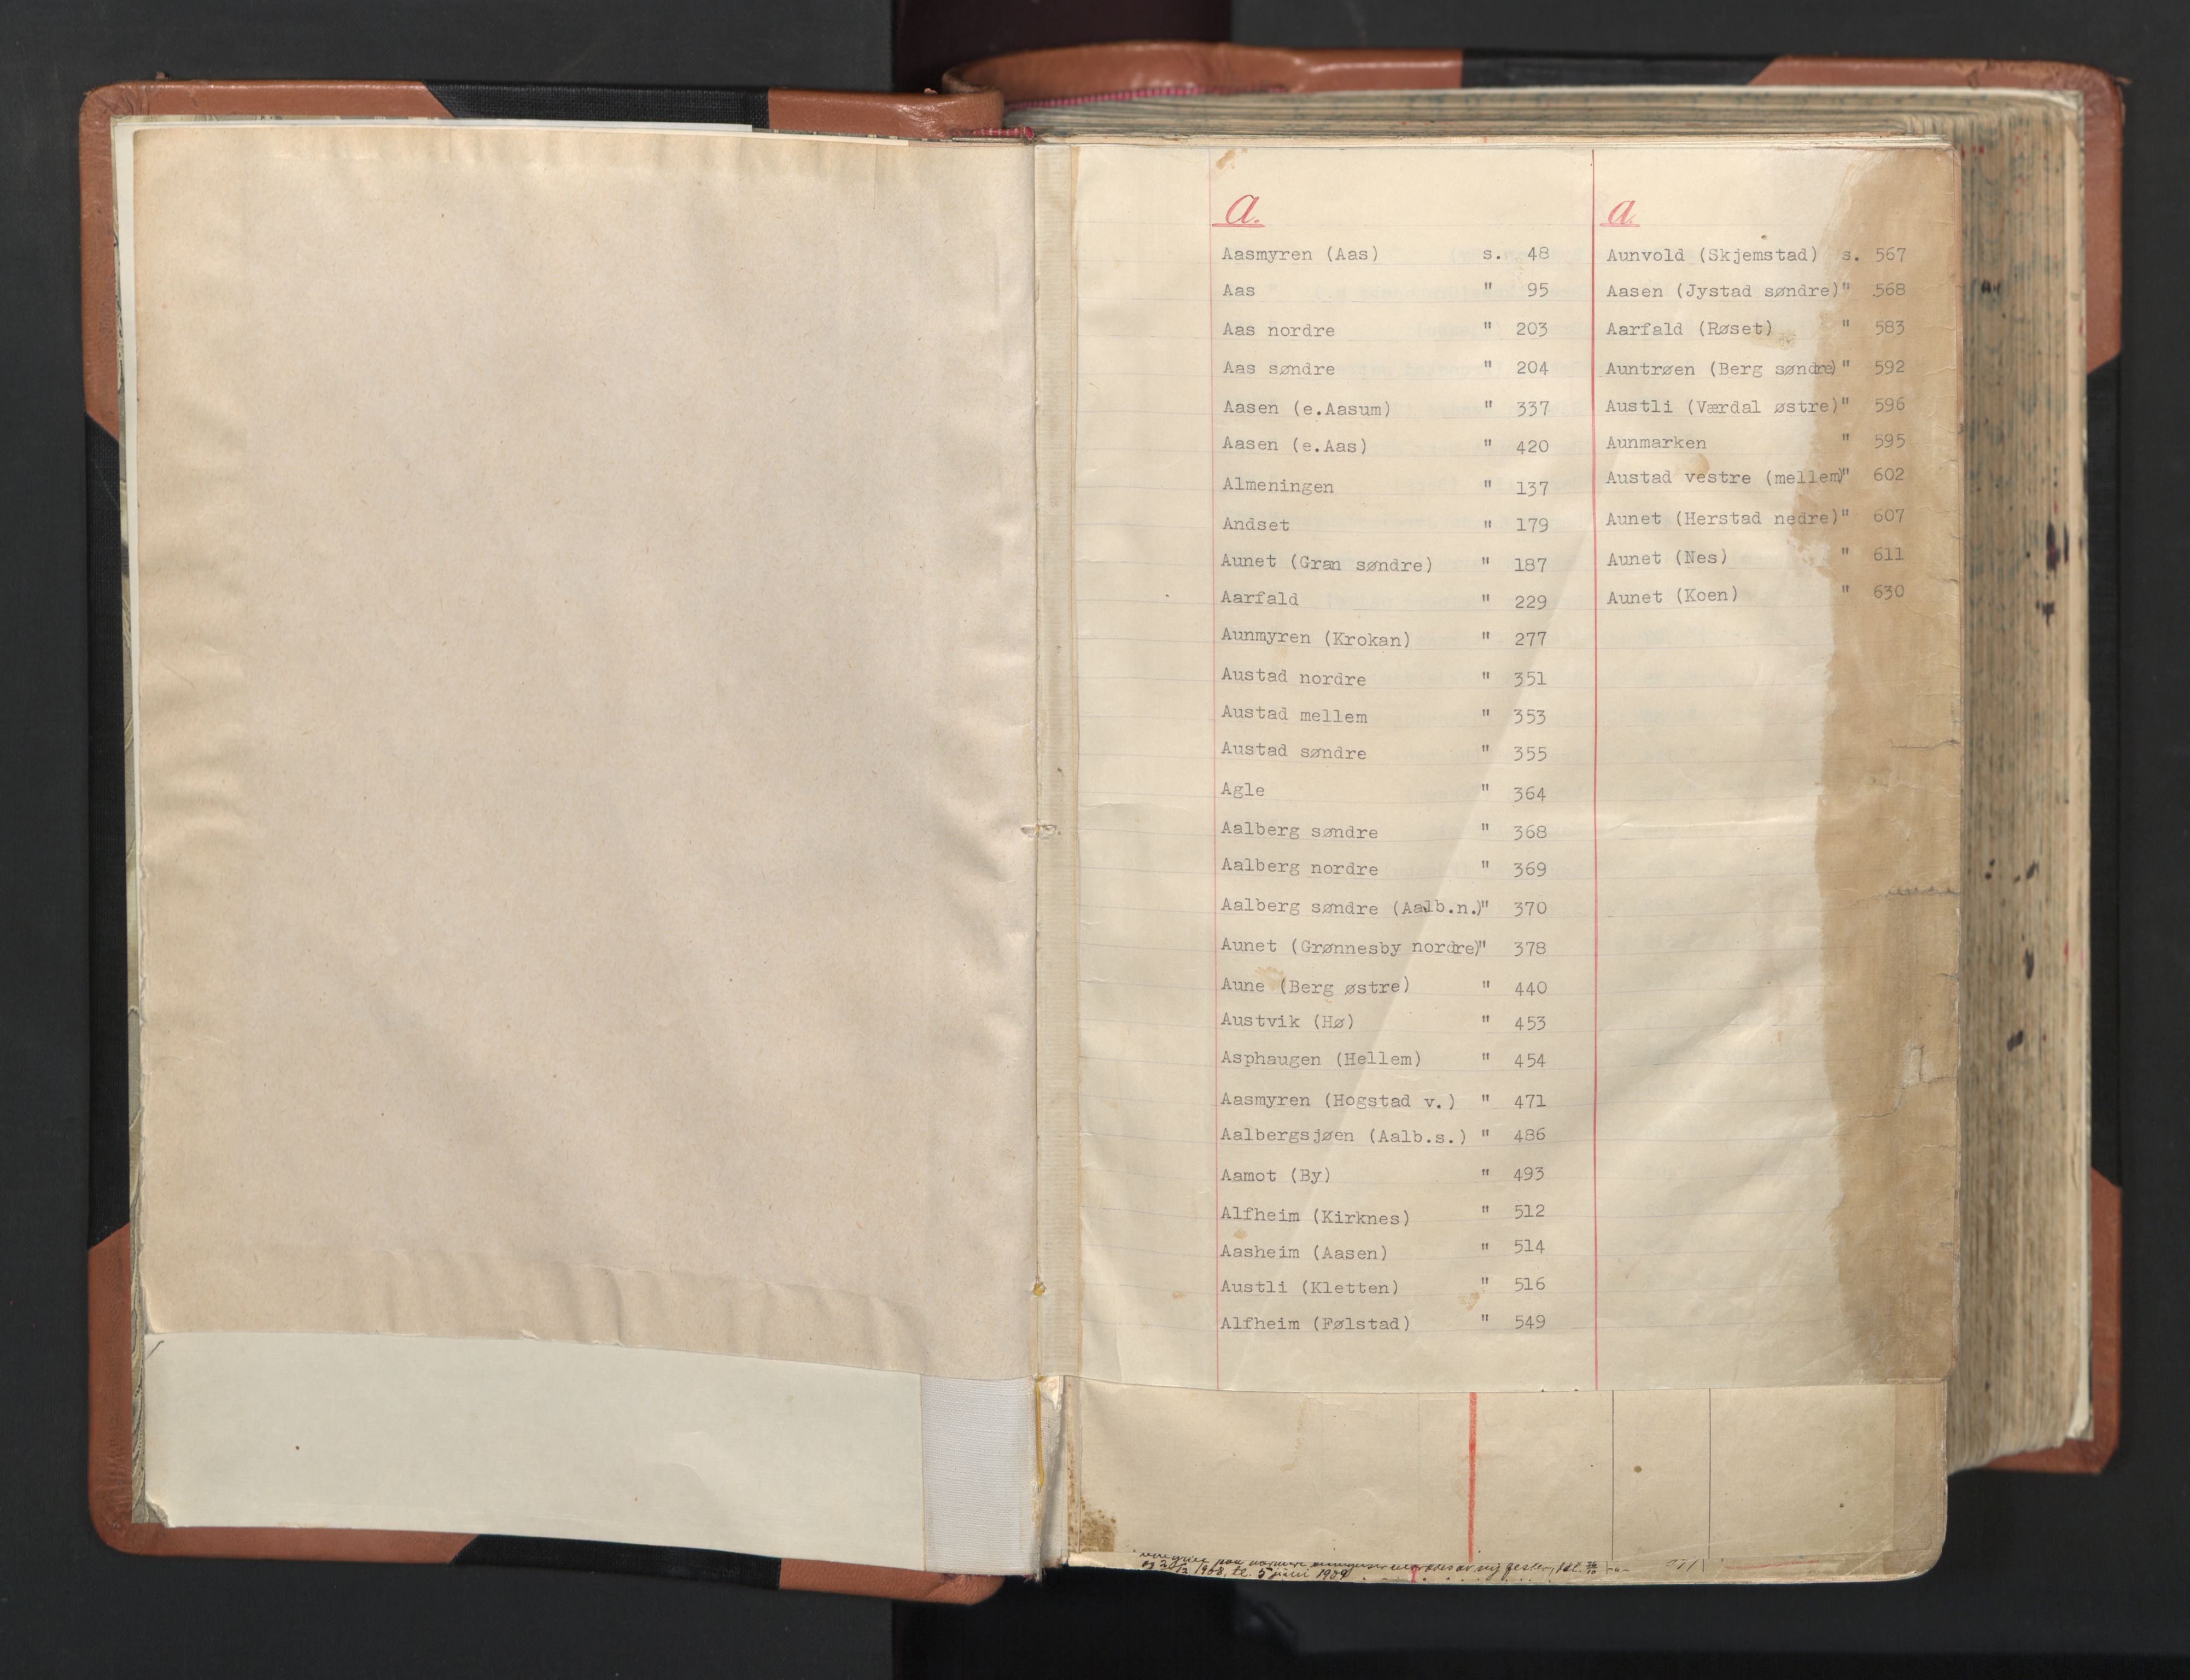 a.
Aasmyren (Aas) s. 48
Aas " 95
Aas nordre " 203
Aas søndre " 204
Aasen (e.Aasum) " 337
Aasen (e.Aas) " 420
Almeningen " 137
Andset " 179
Aunet (Gran søndre) " 187
Aarfald " 229
Aunmyren (Krokan) " 277
Austad nordre " 351
Austad mellem " 353
Austad søndre " 355
Agle " 364
Aalberg søndre " 368
Aalberg nordre " 369
Aalberg søndre (Aalb.n.)" 370
Aunet (Grønnesby nordre)" 378
Aune (Berg østre) " 440
Austvik (Hø) " 453
Asphaugen (Hellem) " 454
Aasmyren (Hogstad v.) " 471
Aalbergsjøen (Aalb.s.) " 486
Aamot (By) " 493
Alfheim (Kirknes) " 512
Aasheim (Aasen) " 514
Austli (Kletten) " 516
Alfheim (Følstad) " 549
a.
Aunvold (Skjemstad) s. 567
Aasen (Jystad søndre)" 568
Aarfald (Røset) " 583
Auntrøen (Berg søndre)" 592
Austli (Værdal østre)" 596
Aunmarken " 595
Austad vestre (mellem)" 602
Aunet (Herstad nedre)" 607
Aunet (Nes) " 611
Aunet (Koen) " 630